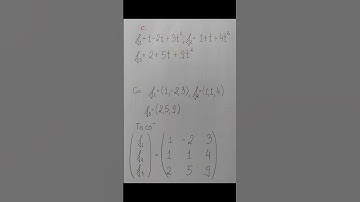 c.
f₁=1-2t+3t², f₂=1+t+4t²
f₃=2+5t+9t²
f₁=(1,-2,3), f₂=(1,1,4)
f₃=(2,5,9)
(f₁ f₂ f₃) = (1 -2 3
1 1 4
2 5 9)